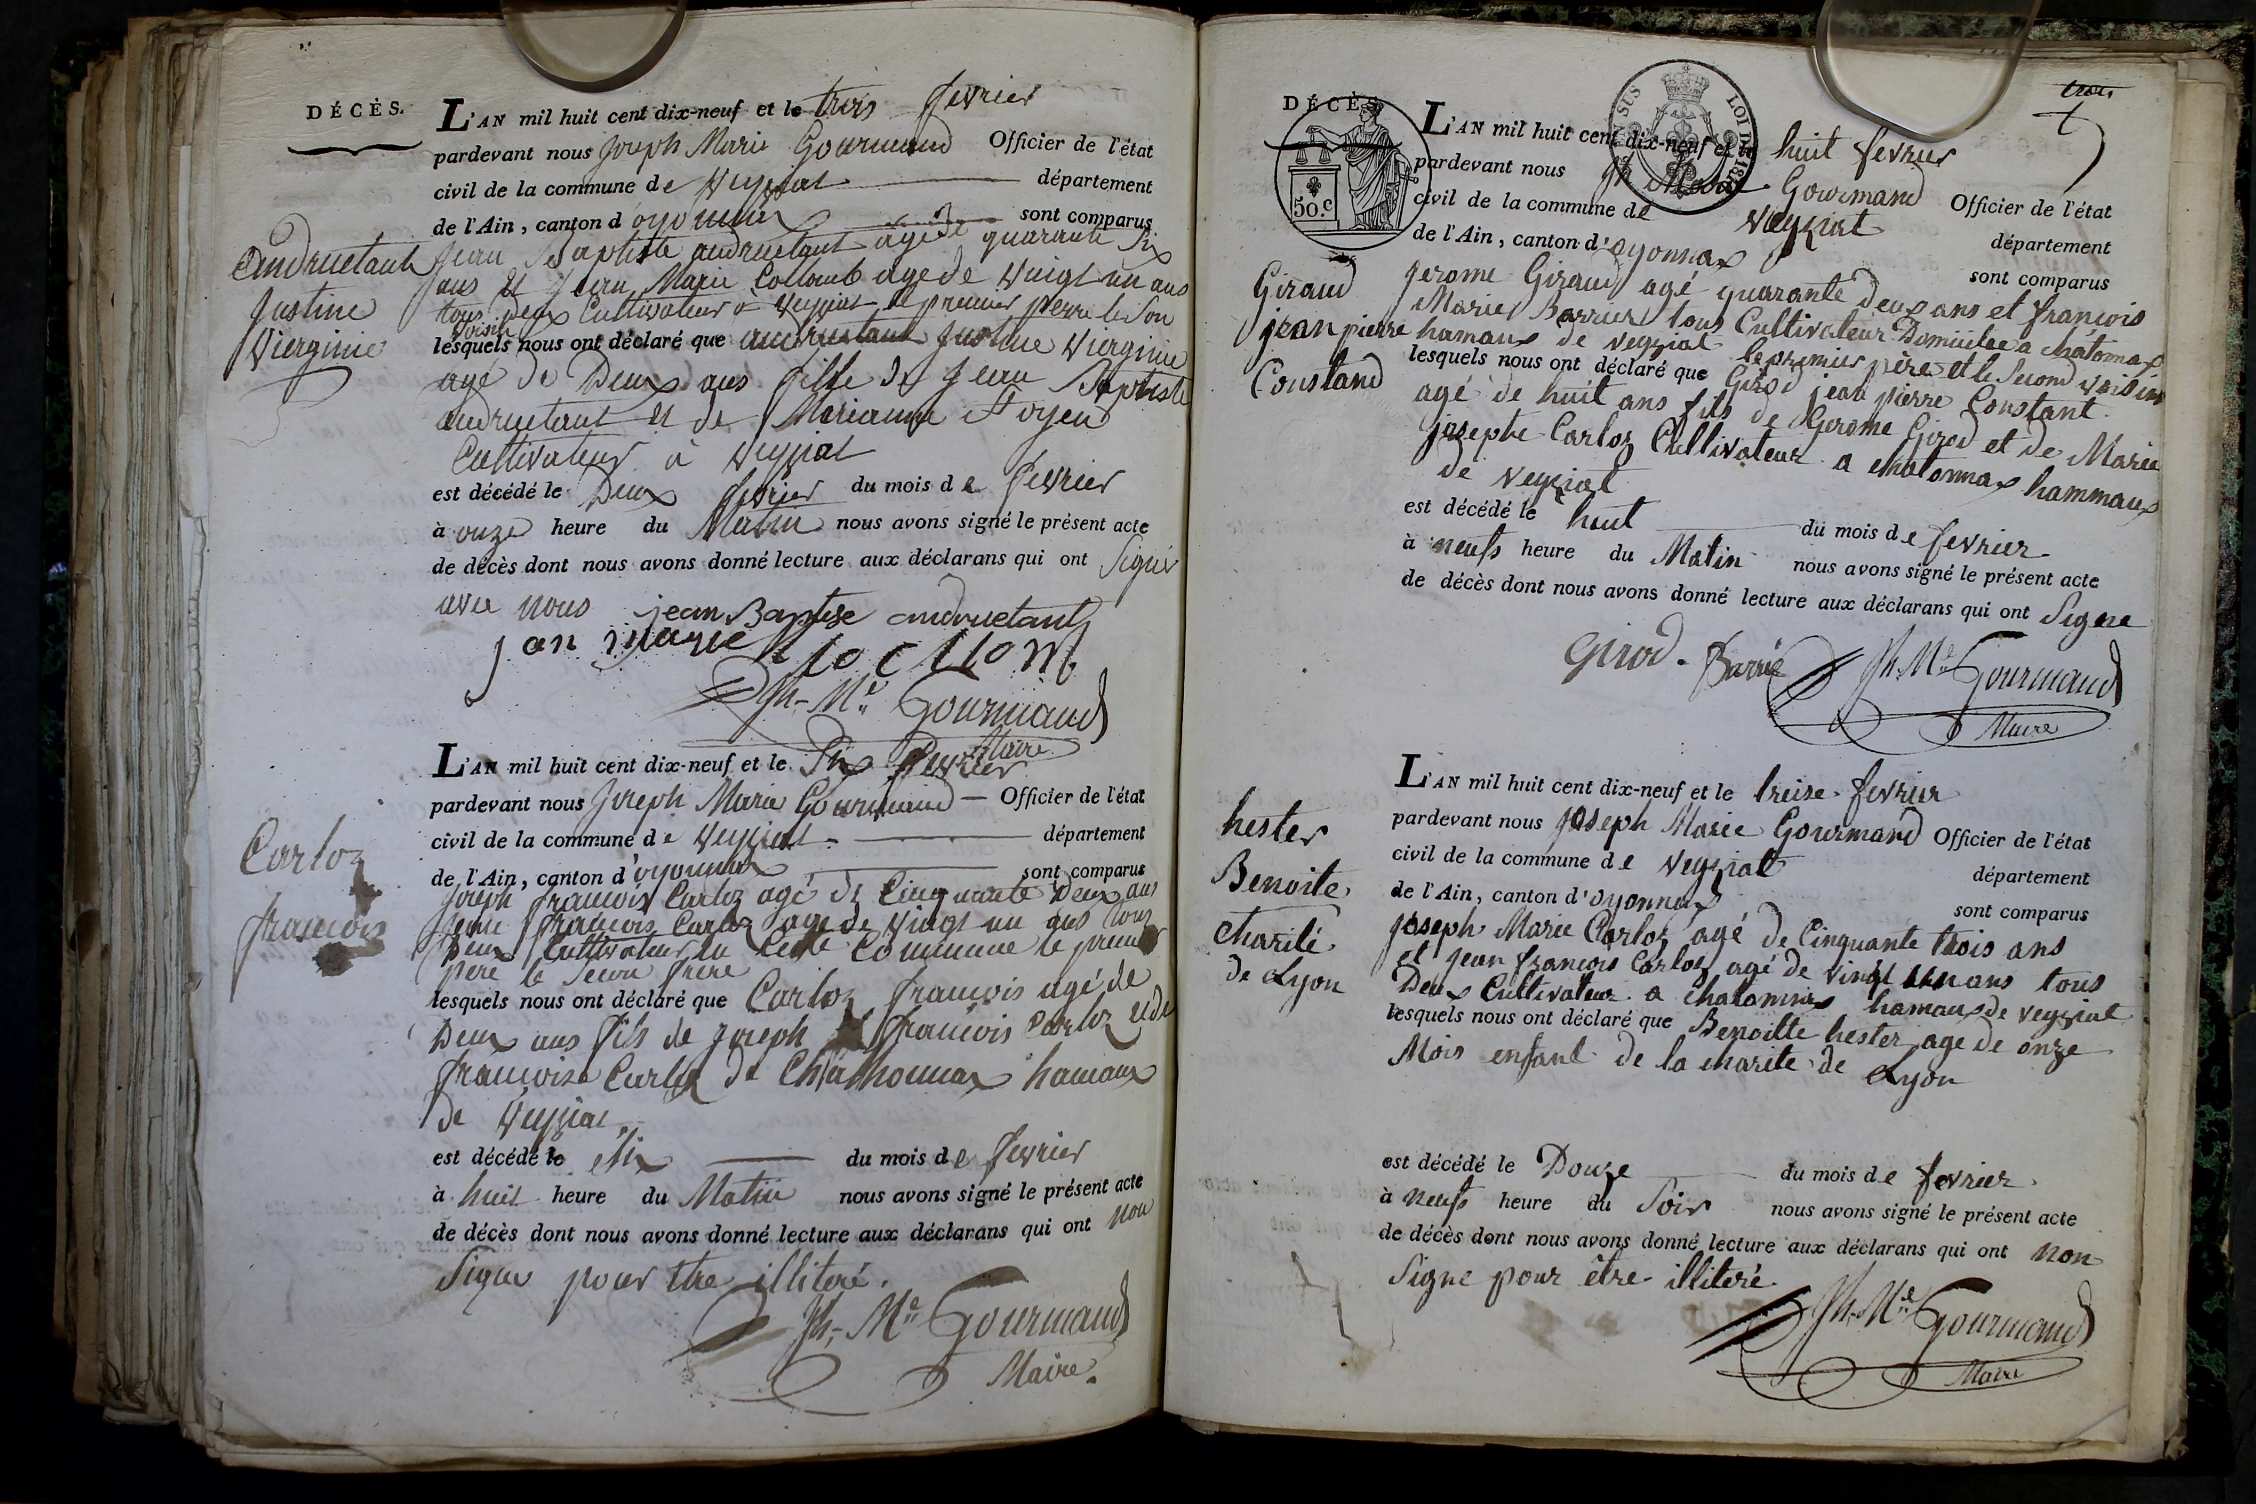 DÉCÈS.
L'AN mil huit cent dix-neuf et le trois fevrier
pardevant nous Joseph Marie Gourmand Officier de l'état
civil de la commune de Veyziat département
de l'Ain, canton d'oyonnax sont comparus
Jean Baptiste andruetant agé de quarante six
ans et Jean Marie Collomb age de vingt un ans
tous deux Cultivateur a Veyziat le premier perre le Son
voisin
lesquels nous ont déclaré que andruetant Justine Vierginie
age de Deux ans fille de Jean Baptiste
andruetant et de Marianne St oyend
Cultivateur à Veyziat
est décédé le Deux fevrier du mois de fevrier
à onze heure du Matin nous avons signé le présent acte
de décès dont nous avons donné lecture aux déclarans qui ont Signé
avec nous jean Baptise andruetant
jan marie
Jh. Me. Gourmand
Maire
Andruetant
Justine
Vierginie
L'AN mil huit cent dix-neuf et le Six fevrier
pardevant nous Joseph Marie Gourmand Officier de l'état
civil de la commune de Veyziat département
de l'Ain, canton d'oyonnax sont comparus
Joseph francois Carloz agé de Cinquante Deux ans
Jean francois Carloz age de vingt un ans tous
Deux Cultivateur en Cette Commune le premier
pere le Secon frere
lesquels nous ont déclaré que Carloz francois agé de
Deux ans fils de Joseph francois Carloz et de
francoise Carloz de Chathonnax hamaux
de Veyziat
est décédé le Six du mois de fevrier
à huit heure du Matin nous avons signé le présent acte
de décès dont nous avons donné lecture aux déclarans qui ont non
Signe pour être illiteré.
Jh. Me. Gourmand
Maire.
Carloz
francois
DÉCÈS
50.c
LOI DE 18
L'AN mil huit cent dix-neuf et le huit fevrier
pardevant nous Jh Marie Gourmand Officier de l'état
civil de la commune de Veyziat département
de l'Ain, canton d'oyonnax sont comparus
Jerome Giraud agé quarante deux ans et francois
Marie Barrier tous Cultivateur Domiciliee a chatonnax
hamaux de Veyziat le premier père et le Second voisin
lesquels nous ont déclaré que Girod jean pierre Constant
agé de huit ans fils de Gerome Girod et de Marie
josephe Carloz Cultivateur a chatonnax hammaux
de Veyziat
est décédé le huit du mois de fevrier
à neufs heure du Matin nous avons signé le présent acte
de décès dont nous avons donné lecture aux déclarans qui ont Signe
Girod. Barrié Jh. Me. Gourmand
Maire
Giraud
jean pierre
Constand
L'AN mil huit cent dix-neuf et le treise fevrier
pardevant nous Joseph Marie Gourmand Officier de l'état
civil de la commune de Veyziat département
de l'Ain, canton d'oyonnax sont comparus
Joseph Marie Carloz agé de Cinquante trois ans
et Jean francois Carloz agé de vingt un ans tous
Deux Cultivateur a chatonnax hamaux de Veyziat
lesquels nous ont déclaré que Benoitte hester age de onze
Mois enfant de la charite de Lyon
est décédé le Douze du mois de fevrier.
à neufs heure du Soir nous avons signé le présent acte
de décès dont nous avons donné lecture aux déclarans qui ont non
Signe pour être illiteré.
Jh. Me. Gourmand
Maire
hester
Benoite
charité
de Lyon